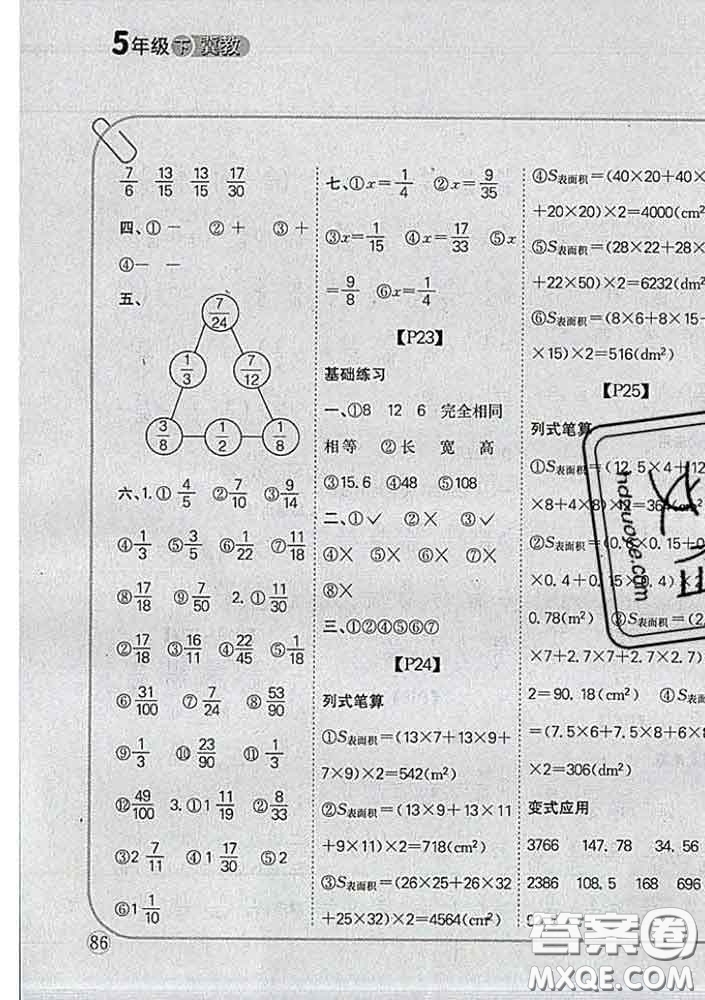 5年级 下 冀教
7/6 13/15 13/15 17/30
四、①－ ②＋ ③＋
④－ －
五、
7/24
1/3 7/12
3/8 1/2 1/8
六、1.① 4/5 ② 7/10 ③ 9/14
④ 1/3 ⑤ 3/5 ⑥ 1/22 ⑦ 11/18
⑧ 17/18 ⑨ 7/50 2.① 11/30
② 17/18 ③ 16/11 ④ 22/45 ⑤ 1/18
⑥ 31/100 ⑦ 7/24 ⑧ 53/90
⑨ 1/3 ⑩ 23/90 ⑪ 1/3
⑫ 49/100 3.①1 11/19 ② 8/33
③2 7/11 ④1 17/30 ⑤2
⑥1 1/10
86
七、①x＝1/4 ②x＝9/35
③x＝1/15 ④x＝17/33 ⑤x
＝9/8 ⑥x＝1/4
【P23】
基础练习
一、①8 12 6 完全相同
相等 ②长 宽 高
③15.6 ④48 ⑤108
二、①✓ ②× ③✓
④× ⑤× ⑥× ⑦×
⑧×
三、①②④⑤⑥⑦
【P24】
列式笔算
①S表面积＝(13×7＋13×9＋
7×9)×2＝542(m²)
②S表面积＝(13×9＋13×11
＋9×11)×2＝718(cm²)
③S表面积＝(26×25＋26×32
＋25×32)×2＝4564(cm²)
④S表面积＝(40×20＋40×
＋20×20)×2＝4000(cm²
⑤S表面积＝(28×22＋28×
＋22×50)×2＝6232(dm²)
⑥S表面积＝(8×6＋8×15＋
×15)×2＝516(dm²)
【P25】
列式笔算
①S表面积＝(12.5×4＋12
×8＋4×8)×2＝364(cm²
②S表面积＝(0.×0.15＋0
×0.4＋0.15×0.4)×2＝
0.78(m²) ③S表面积＝(2.
×7＋2.7×7＋2.7×2.7)
2＝90.18(cm²) ④S表面积
＝(7.5×6＋7.5×8＋6×
×2＝306(dm²)
变式应用
3766 147.78 34.56
2386 108.5 168 696
9
hdzuoye.com
答案圈
MXQE.COM